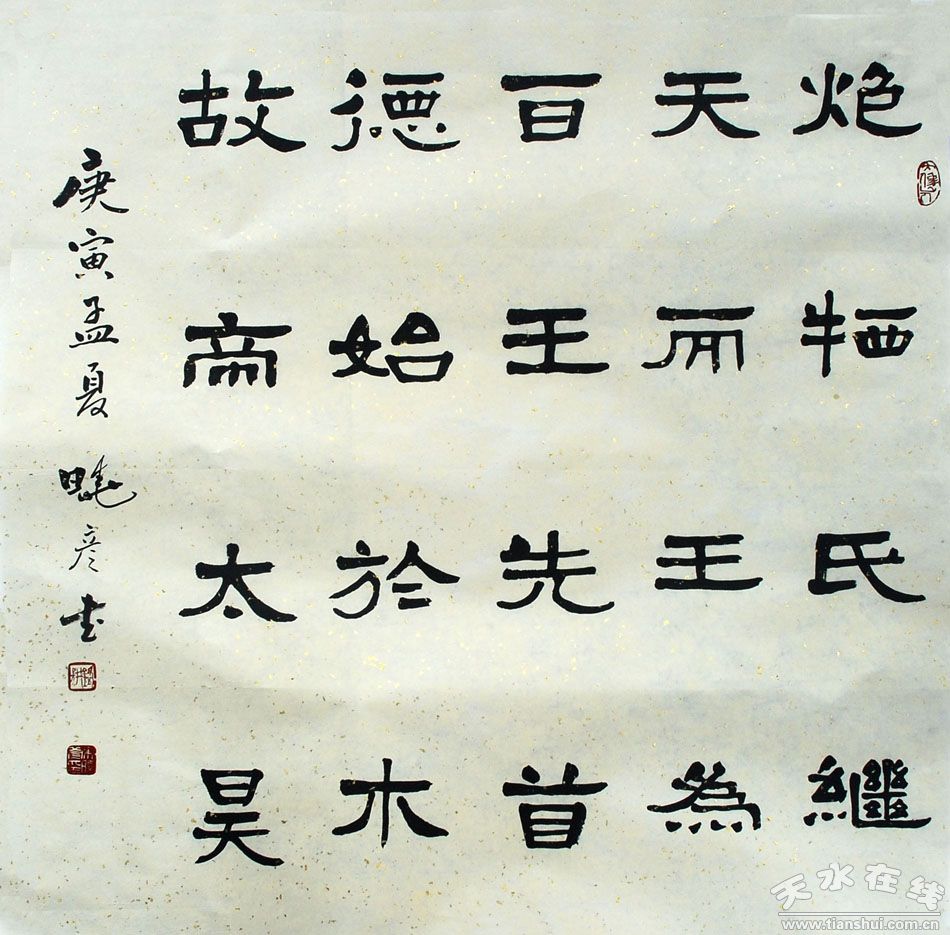 炮牺氏繼
天而王為
百王先首
德始於木
故帝太昊
庚寅孟夏 晓彦书
天水在线
www.tianshui.com.cn